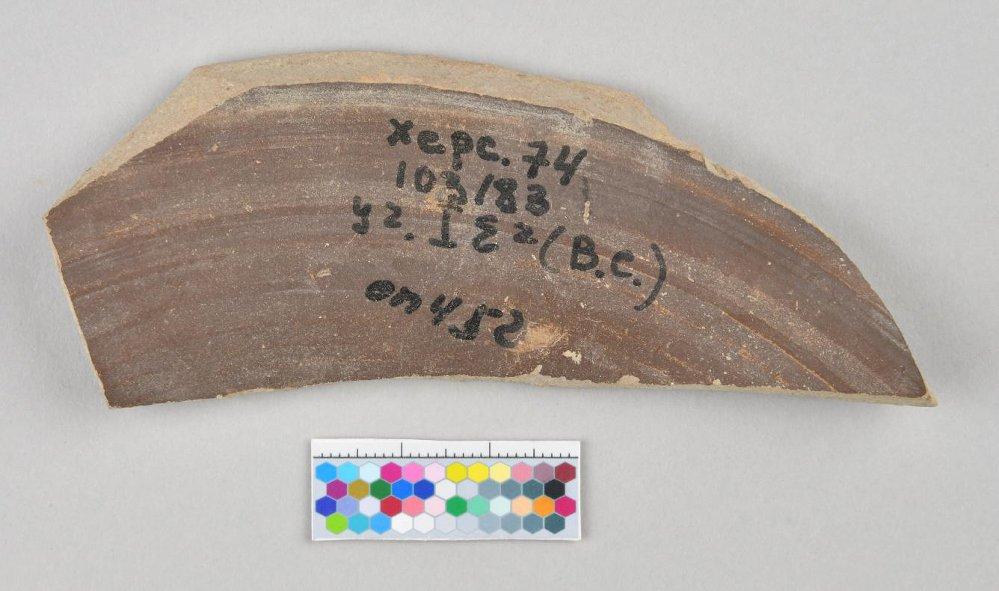 Херс. 74
103/83
уг. I Е² (В.С.)
оп 452